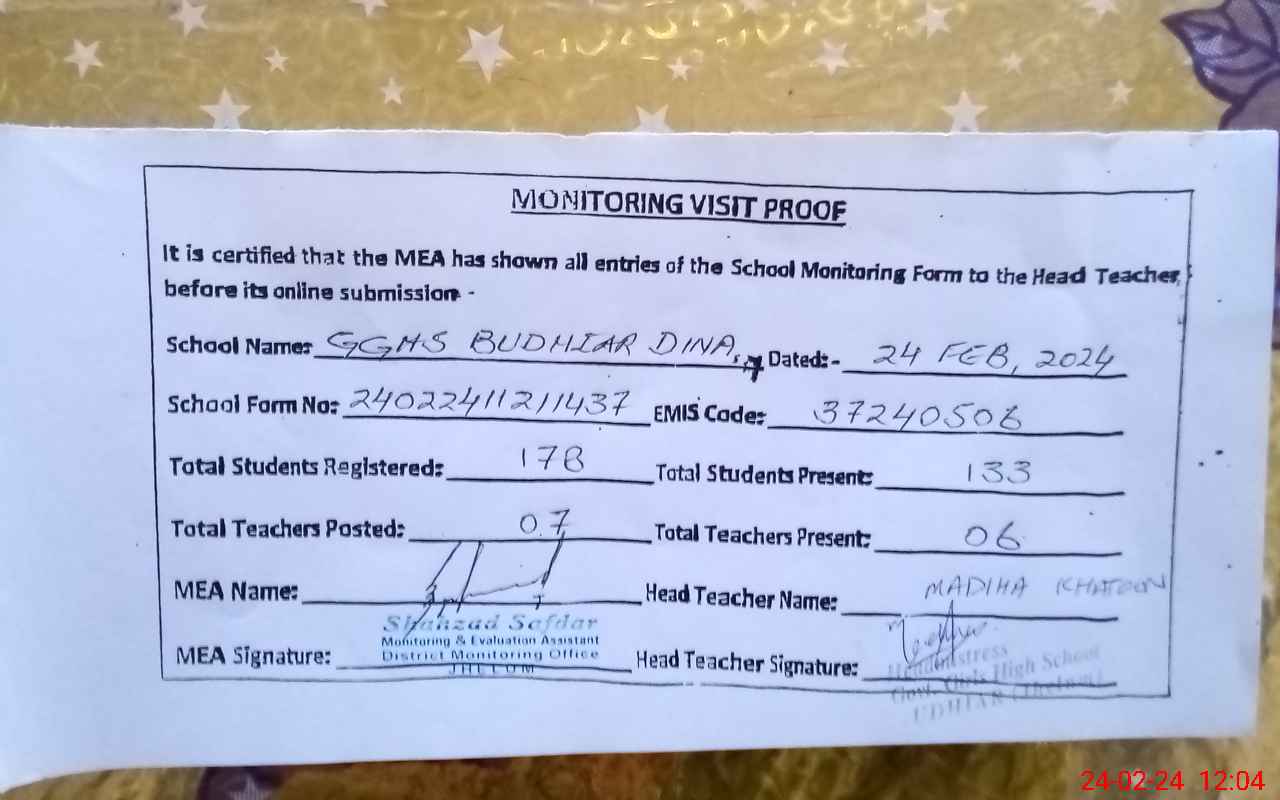 MONITORING VISIT PROOF
It is certified that the MEA has shown all entries of the School Monitoring Form to the Head Teacher,
before its online submission -
School Name: GGHS BUDHIAR DINA, Dated:- 24 FEB, 2024
School Form No: 24022411211437 EMIS Code: 37240506
Total Students Registered: 178 Total Students Present: 133
Total Teachers Posted: 07 Total Teachers Present: 06
MEA Name: Head Teacher Name: MADIHA KHATOON
Shahzad Safdar
Monitoring & Evaluation Assistant
District Monitoring Office
JHELUM
MEA Signature: Head Teacher Signature:
Headmistress
Govt. Girls High School
UDHIAR (Jhelum)
24-02-24 12:04